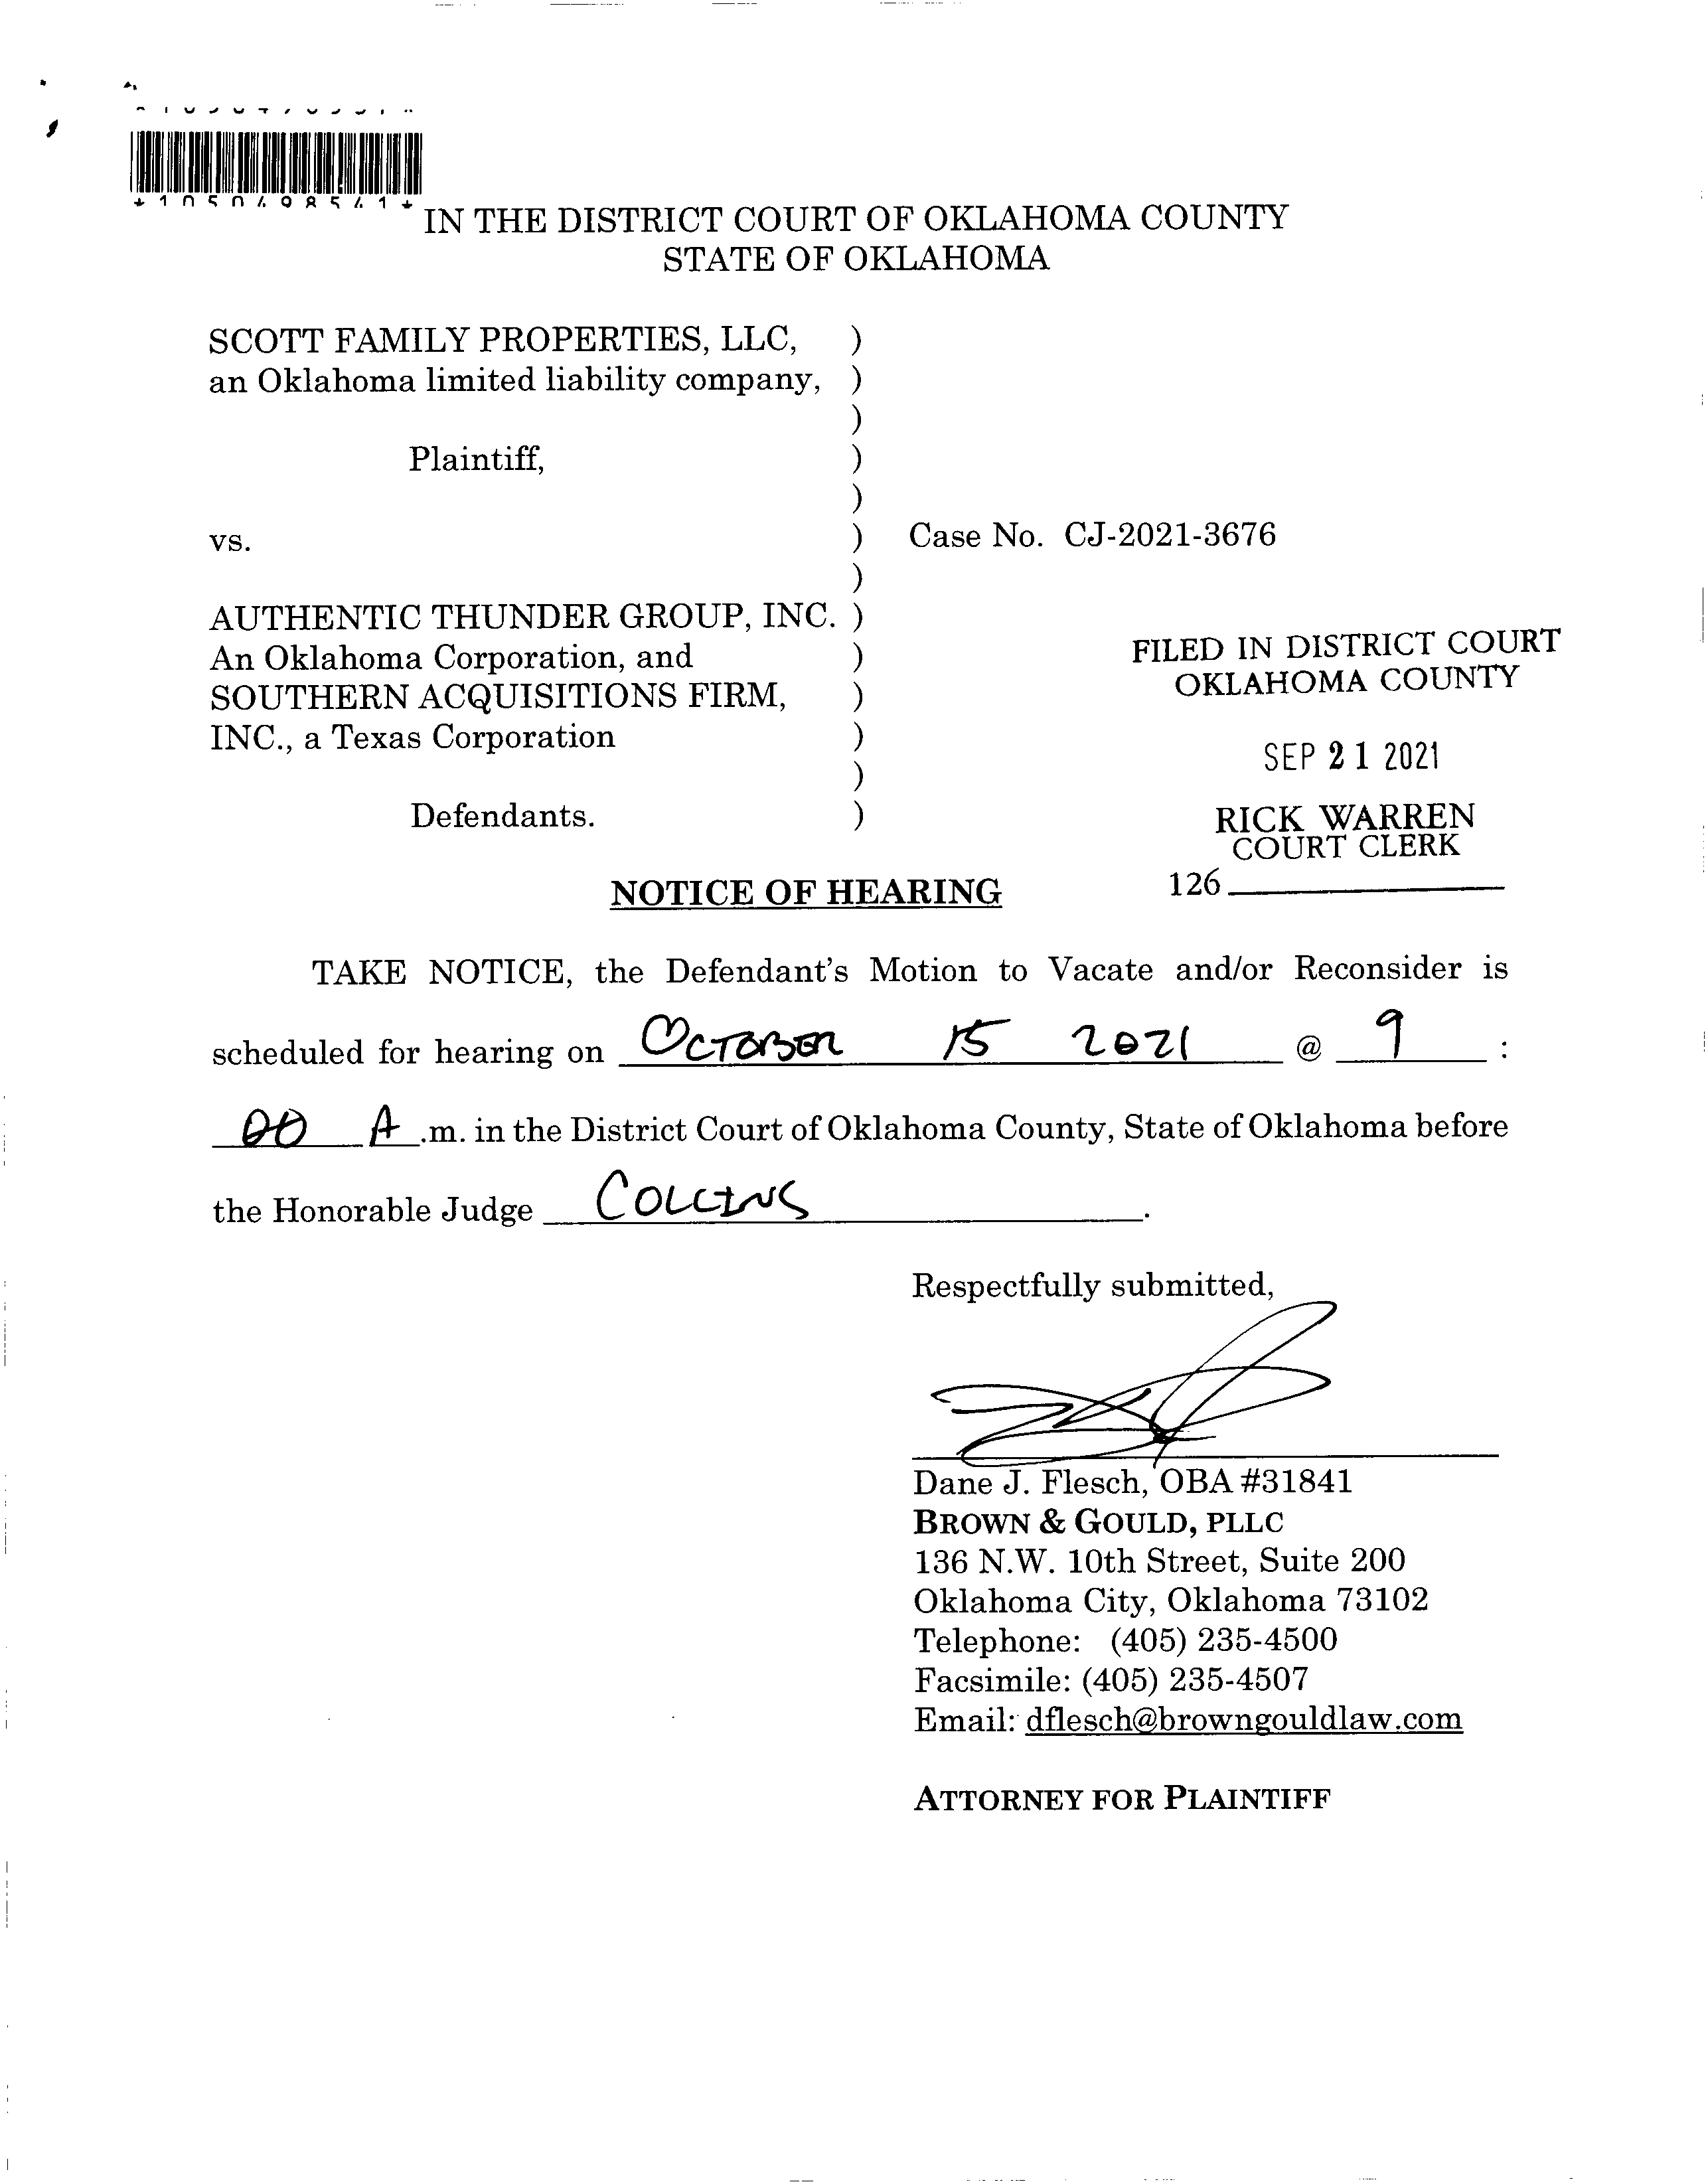 *1050498541*
IN THE DISTRICT COURT OF OKLAHOMA COUNTY
STATE OF OKLAHOMA
SCOTT FAMILY PROPERTIES, LLC, )
an Oklahoma limited liability company, )
)
Plaintiff, )
)
vs. ) Case No. CJ-2021-3676
)
AUTHENTIC THUNDER GROUP, INC. )
An Oklahoma Corporation, and )
SOUTHERN ACQUISITIONS FIRM, )
INC., a Texas Corporation )
)
Defendants. )
FILED IN DISTRICT COURT
OKLAHOMA COUNTY
SEP 21 2021
RICK WARREN
COURT CLERK
126
NOTICE OF HEARING
TAKE NOTICE, the Defendant's Motion to Vacate and/or Reconsider is
scheduled for hearing on OCTOBER 15 2021 @ 9 :
00 A .m. in the District Court of Oklahoma County, State of Oklahoma before
the Honorable Judge COLLINS.
Respectfully submitted,
Dane J. Flesch, OBA #31841
BROWN & GOULD, PLLC
136 N.W. 10th Street, Suite 200
Oklahoma City, Oklahoma 73102
Telephone: (405) 235-4500
Facsimile: (405) 235-4507
Email: dflesch@browngouldlaw.com
ATTORNEY FOR PLAINTIFF